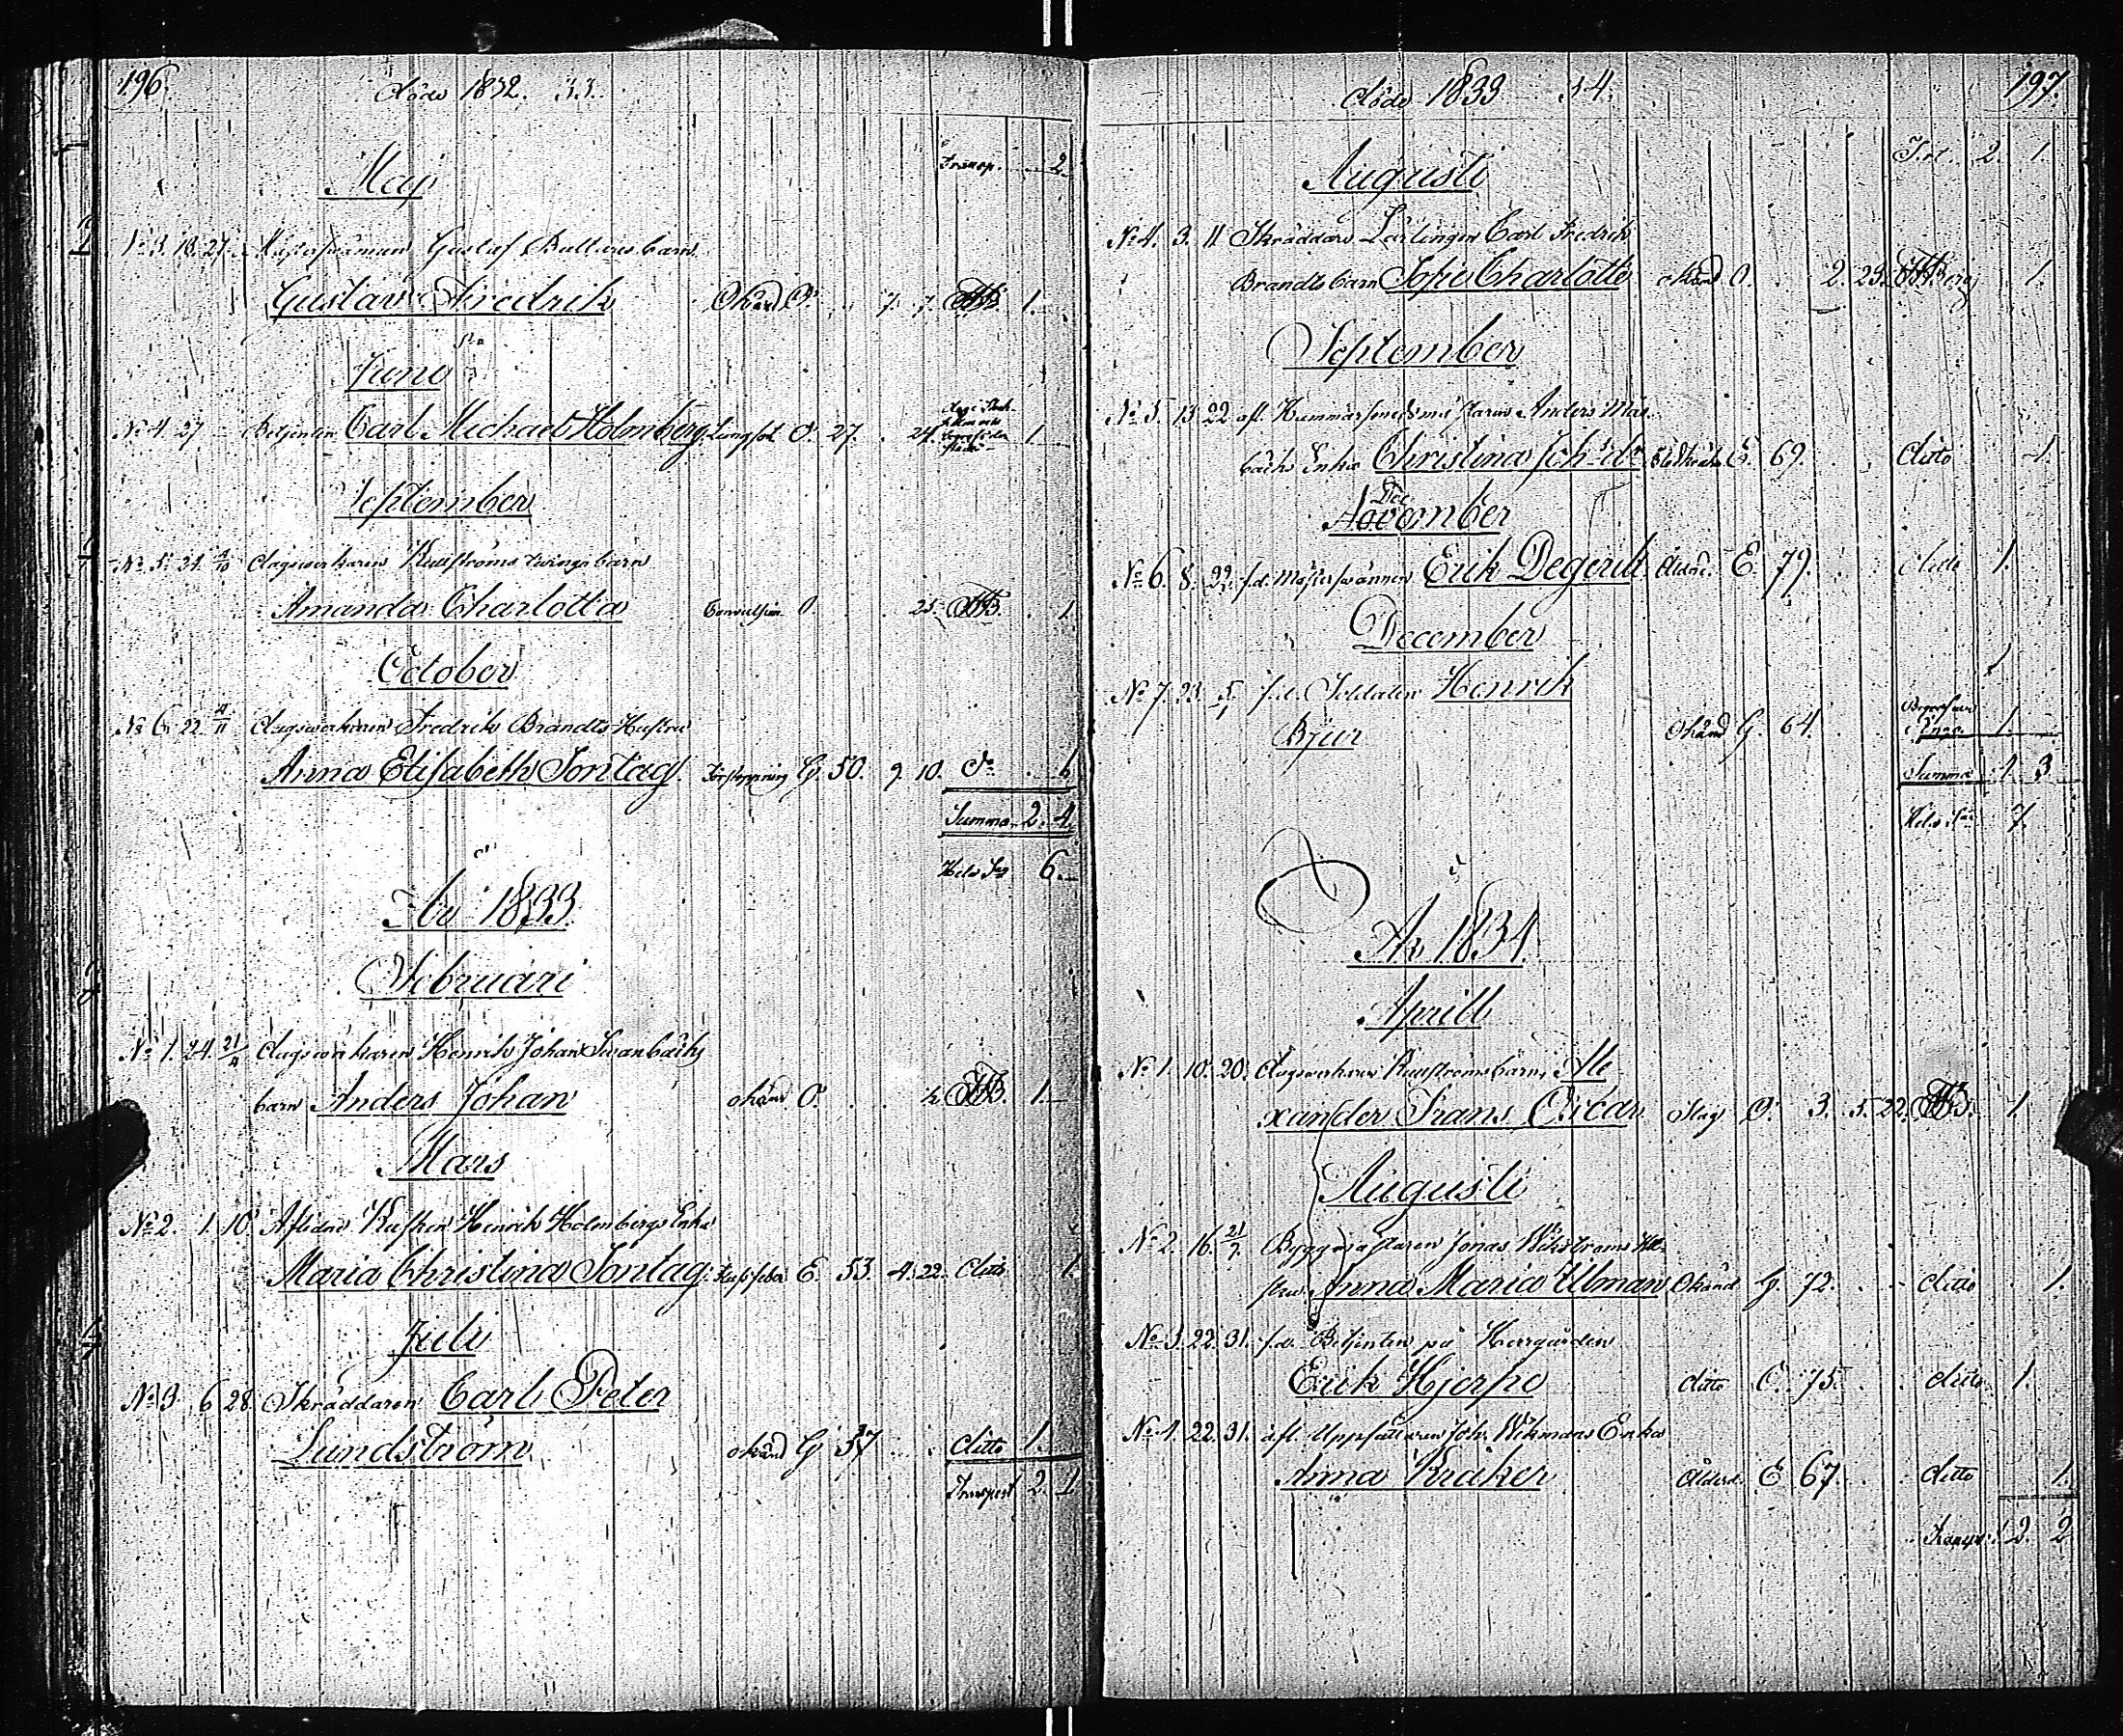 196.
Döde 1832. 33.
Transp. 2.
Maj
No 3. 18. 27. Gustaf barn
Gustav Fredrik Okänd O. 7. 7. 1.
Juni
No 4. 27 Betjenten Carl Michael Holmberg Lungsot O. 27. 24. 1
September
No 5. 21. Dagsverkaren Rullströms barn
Amanda Charlotta Convulsion O. 25. 1
October
No 6. 22. 4/11 Dagsverkaren Fredrik Brandts Hustru
Anna Elisabeth Sontag Förstoppning G. 50. 9. 10. Do 1
Summa 2. 4.
Hela Sa 6.
År 1833.
Februari
No 1. 24. Dagsverkaren Henrik Johan Svanbäcks
barn Anders Johan okänd O. 1
Mars
No 2. 1. 10 Aflidne Kusken Henrik Holmbergs Enka
Maria Christina Sontag E. 53. 4. 22. Ditto 1.
Juli
No 3. 6 28. Skräddaren Carl Peter
Lundström okänd G 37 Ditto 1.
Transport 2. 1
197.
Döde 1833 34.
2. 1.
Augusti
No 4. 3. 11 Skräddare Lärlingen Carl Fredrik
Brandts barn Sofie Charlotte okänd O. 2. 23. 1.
September
No 5. 13. 22 afl. Hammarsmedsmästaren Anders Mas-
backs Enka Christina Joh:dr E. 69. Ditto 1.
Dec
November
No 6. 8. 22 f.d. Mästersvännen Erik Degerik Ålderd. E. 79. Ditto 1.
December
No 7. 23. 5/1 f.d. Soldaten Henrik
Bjur Okänd G. 64. 1.
Summa 4. 3.
Hela Sa 7.
År 1834.
Aprill
No 1. 10. 20. Dagsverkaren Rullströms barn Ale-
xander Frans Oscar Slag O. 3. 5. 22. 1.
Augusti
No 2. 16. Byggmästaren Jonas Wikströms Hu-
stru Anna Maria Ulman Okänd G. 72. Ditto 1.
No 3. 22. 31. f.d. Betjenten på Herrgården
Erik Hjerpe ditto O. 75. ditto 1.
No 4. 22. 31. afl. Uppsättaren Joh. Wikmans Enka
Anna Kråker Ålderd. E 67. ditto 1.
2. 2